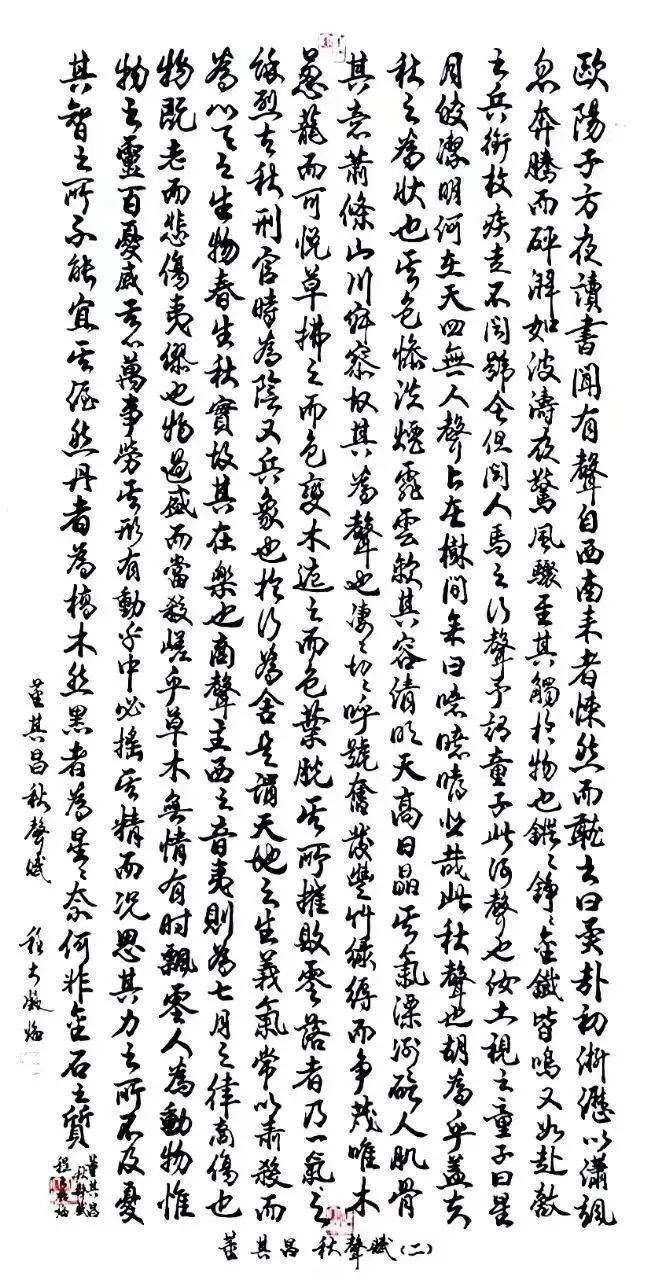 歐陽子方夜讀書聞有聲自西南来者悚然而聽之曰異哉初淅瀝以瀟颯
忽奔騰而砰湃如波濤夜驚風驟至其觸於物也鏦々錚々金鐵皆鳴又如赴敵
之兵銜枚疾走不聞號令但聞人馬之行聲予謂童子此何聲也汝出視之童子曰星
月皎潔明河在天四無人聲々在樹間余曰噫噫嘻悲哉此秋聲也胡為乎蓋夫
秋之為狀也其色慘淡煙霏雲斂其容清明天高日晶其氣凓冽砭人肌骨
其意蕭條山川寂寥故其為聲也凄々切々呼號奮發豐草綠縟而争茂唯木
蔥蘢而可悅草拂之而色變木遭之而色葉脫其所摧敗零落者乃一氣之
餘烈夫秋刑官時為陰又兵象也於行為金是謂天地之生義氣常以肅殺而
為心天之生物春生秋實故其在樂也商聲主西之音夷則為七月之律商傷也
物既老而悲傷夷戮也物過盛而當殺嗟乎草木無情有时飄零人為動物惟
物之靈百憂感其心萬事勞其形有動乎中必搖其精而况思其力之所不及憂
其智之所不能宜其渥然丹者為槁木然黑者為星々奈何非金石之質
董其昌秋聲賦
董其昌
秋聲賦
董其昌秋聲賦(二)